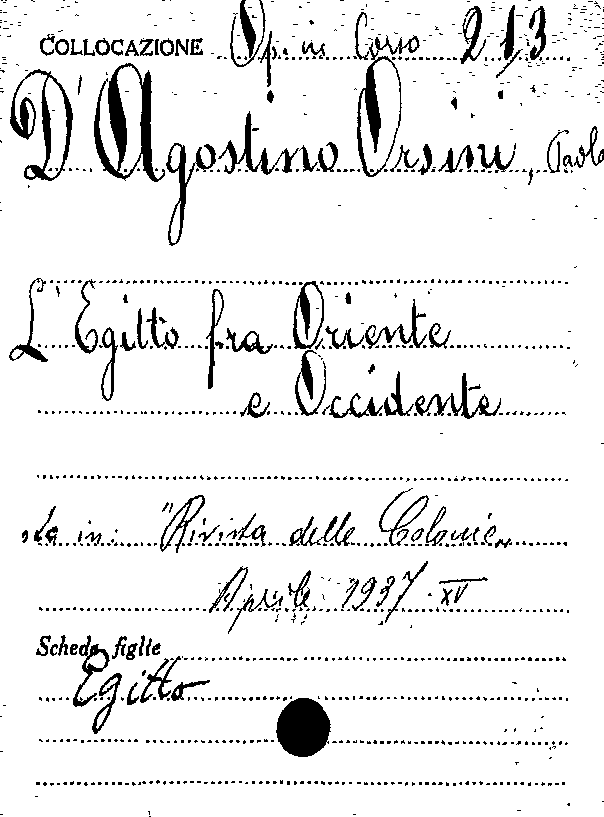 COLLOCAZIONE Op. in Corso 213
D'Agostino Orsini, Paolo
L'Egitto fra Oriente
e Occidente
sta in: "Rivista delle Colonie"
Aprile 1937-XV
Schede figlie
Egitto